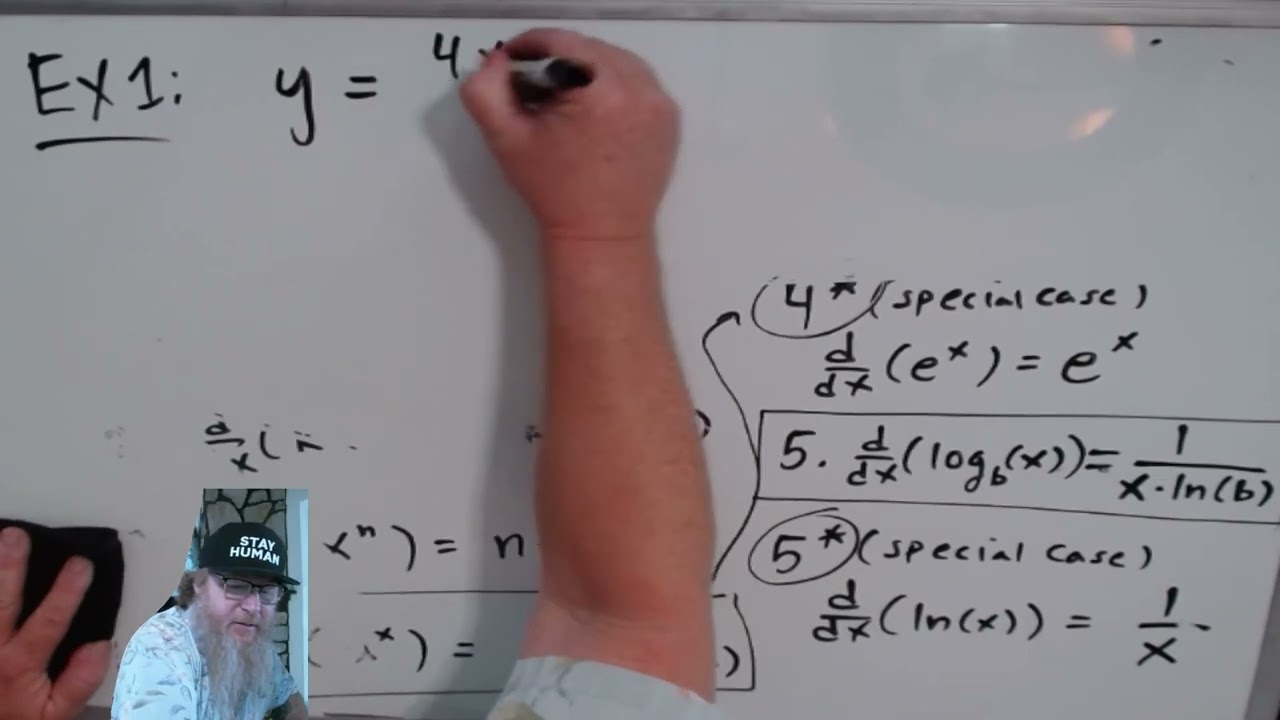 Ex1: y = 4x
4* (special case)
d/dx (e^x) = e^x
5. d/dx (log_b(x)) = 1/(x·ln(b))
5* (special case)
d/dx (ln(x)) = 1/x
x^n) = n
x) =
STAY
HUMAN